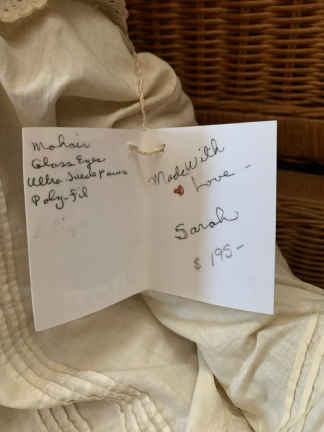 Mohair
Glass Eyes
Ultra Suede Paws
Poly-Fil
Made With
Love -
Sarah
$ 195-